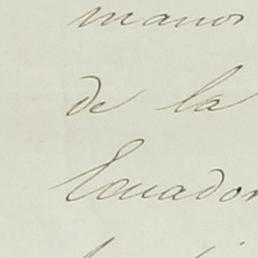 manos
de la
Ecuador